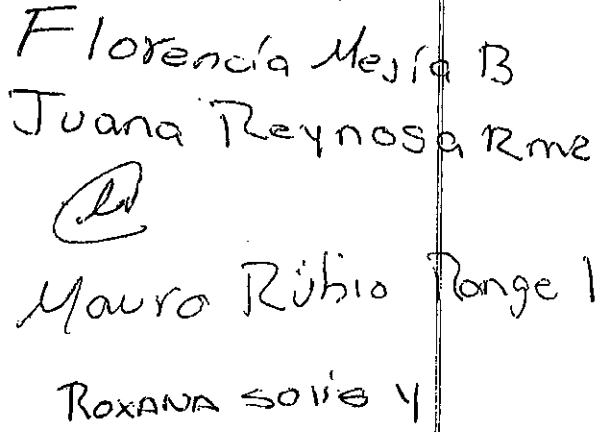 Florencia Mejía B
Juana Reynosa Rmz
Mauro Rubio Rangel
ROXANA SOLIS Y